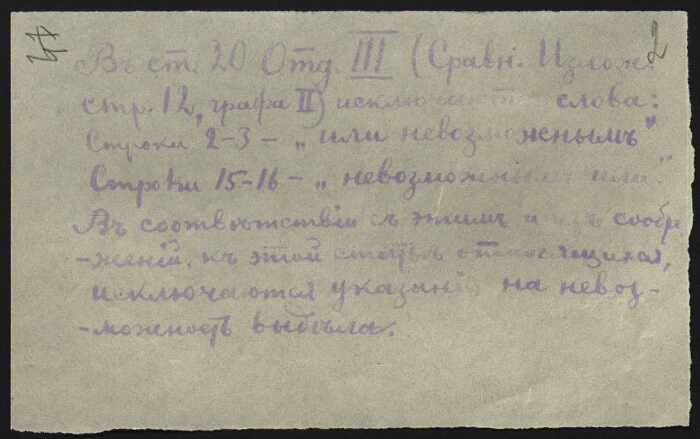 47 2
Въ ст. 20 Отд. III (Сравн. Излож.
стр. 12, графа II) исключаются слова:
Строки 2-3 – „или невозможнымъ"
Строки 15-16 – „невозможнымъ или"
Въ соотвѣтствіи съ этимъ и изъ сообра
-женій, къ этой статьѣ относящихся,
исключаются указанія на невоз-
-можность